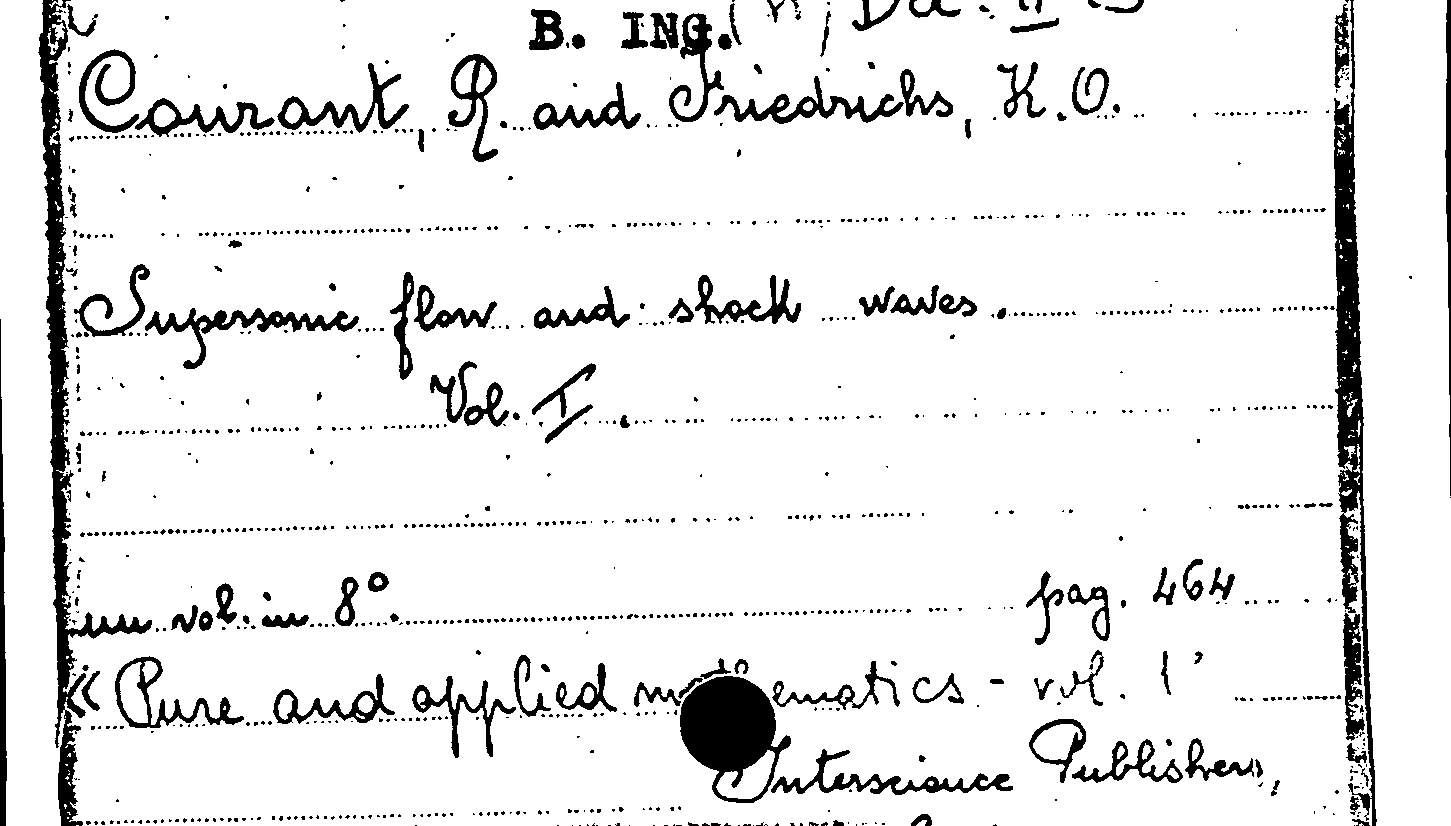 B. ING.
Courant, R. and Friedrichs, K.O.
Supersonic flow and shock waves.
Vol. I.
un vol. in 8°. pag. 464
« Pure and applied mathematics - vol. 1'
Interscience Publishers,